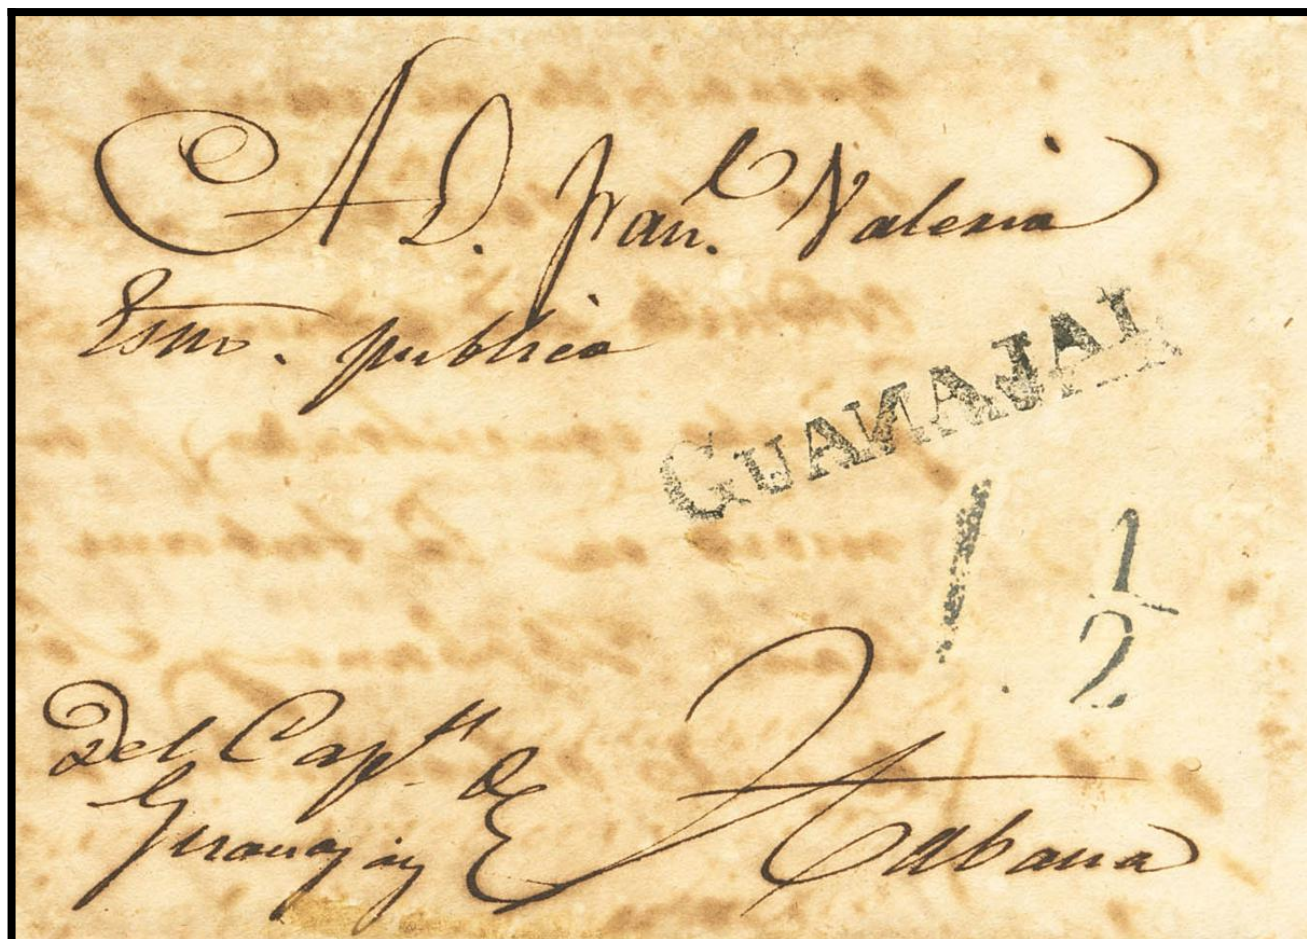 A D. Fran.co Valerio
Essno. publico
GUANAJAI
1 1/2
Del Capn. de
Guanajay
Habana